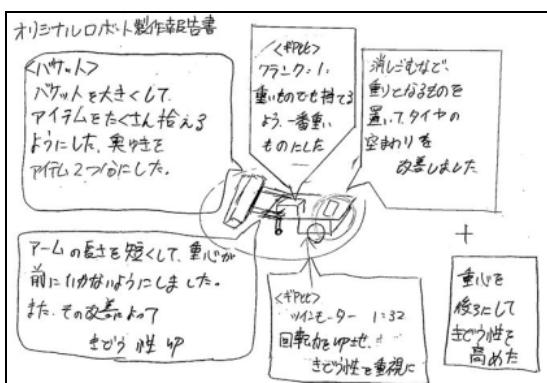 オリジナルロボット製作報告書
<バケット>
バケットを大きくして、
アイテムをたくさん拾える
ようにした。奥ゆきを
アイテム2つ分にした。
<ギア比>
クランク:1:
重いものでも持てる
よう、一番重い
ものにした
消しごむなど、
重りとなるものを
置いて、タイヤの
空まわりを
改善しました
アームの長さを短くして、重心が
前にいかないようにしました。
また、その改善によって
きどう性 up
<ギア比>
ツインモーター 1:32
回転力をupさせ、
きどう性を重視に
+
重心を
後ろにして
きどう性を
高めた